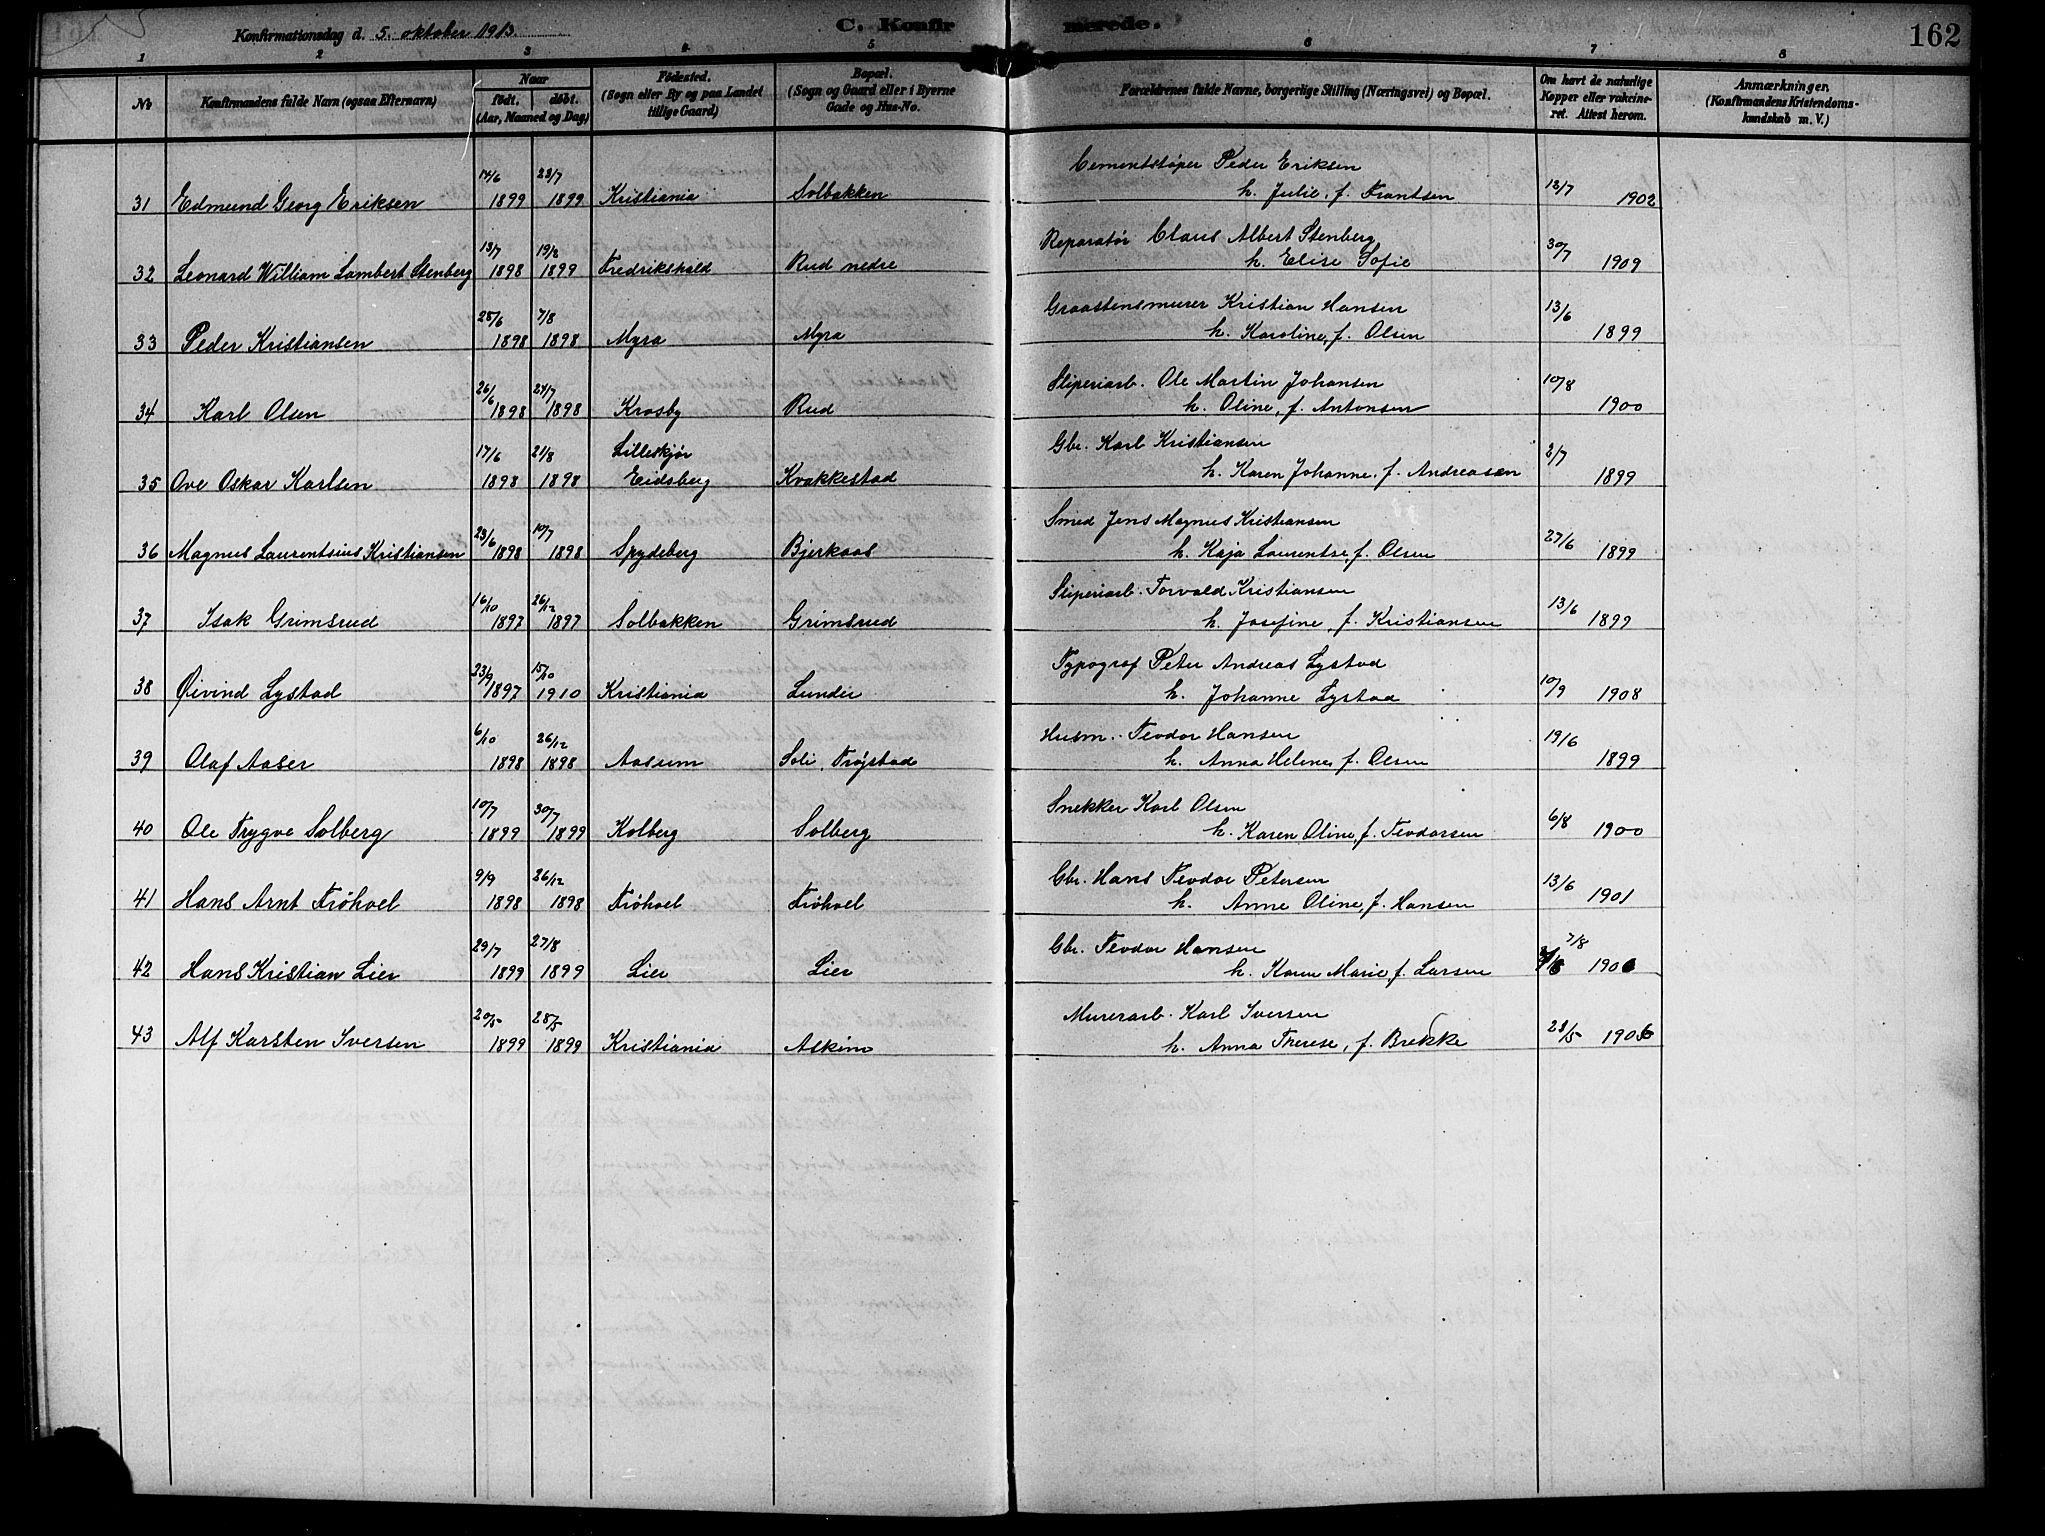 Konfirmationsdag d. 5. oktober 1913.
C. Konfirmerede.
162
1 2 3 4 5 6 7 8
No
Konfirmandens fulde Navn (ogsaa Efternavn)
Naar
født. døbt.
(Aar, Maaned og Dag)
Fødested.
(Sogn eller By og paa Landet
tillige Gaard)
Bopæl.
(Sogn og Gaard eller i Byerne
Gade og Hus-No.
Forældrenes fulde Navne, borgerlige Stilling (Næringsvei) og Bopæl.
Om havt de naturlige
Kopper eller vakcine-
ret. Attest herom.
Anmærkninger.
(Konfirmandens Kristendoms-
kundskab m. V.)
14/6 23/7 Cementstøper Peder Eriksen
31 Edmund Georg Eriksen 1899 1899 Kristiania Solbakken h. Julie, f. Frantsen 12/7 1902
13/7 19/2 Reparatør Claus Albert Stenberg
32 Leonard William Lambert Stenberg 1898 1899 Fredrikshald Rud nedre h. Elise Sofie 30/7 1909
28/6 7/8 Graastensmurer Kristian Hansen
33 Peder Kristiansen 1898 1898 Myra Myra h. Karoline, f. Olsen 13/6 1899
26/6 24/7 Sliperiarb. Ole Martin Johansen
34 Karl Olsen 1898 1898 Krosby Rud h. Oline, f. Antonsen 10/8 1900
17/6 21/8 Lilleskjør Gbr. Karl Kristiansen
35 Ove Oskar Karlsen 1898 1898 Eidsberg Kvakkestad h. Karen Johanne, f. Andreasen 2/7 1899
23/6 10/7 Smed Jens Magnus Kristiansen
36 Magnus Laurentsius Kristiansen 1898 1898 Spydeberg Bjerkaas h. Kaja Laurentse, f. Olsen 27/6 1899
16/10 26/12 Sliperiarb. Torvald Kristiansen
37 Isak Grimsrud 1897 1897 Solbakken Grimsrud h. Josefine, f. Kristiansen 13/6 1899
23/9 15/10 Typograf Peter Andreas Lystad
38 Øivind Lystad 1897 1910 Kristiania Lunder h. Johanne Lystad 10/9 1908
6/10 26/12 Husm. Teodor Hansen
39 Olaf Aaser 1898 1898 Aasum Soli, Trøgstad h. Anna Helene, f. Olsen 19/6 1899
10/7 30/7 Snekker Karl Olsen
40 Ole Trygve Solberg 1899 1899 Kolberg Solberg h. Karen Oline, f. Teodorsen 6/8 1900
9/9 26/12 Gbr. Hans Teodor Petersen
41 Hans Arnt Frøhoel 1898 1898 Frøhoel Frøhoel h. Anne Oline, f. Hansen 13/6 1901
29/7 27/8 Gbr. Teodor Hansen 7/8
42 Hans Kristian Lier 1899 1899 Lier Lier h. Karen Marie, f. Larsen 1906
20/5 28/5 Murerarb. Karl Iversen
43 Alf Karsten Iversen 1899 1899 Kristiania Askim h. Anna Therese, f. Brekke 28/5 1906